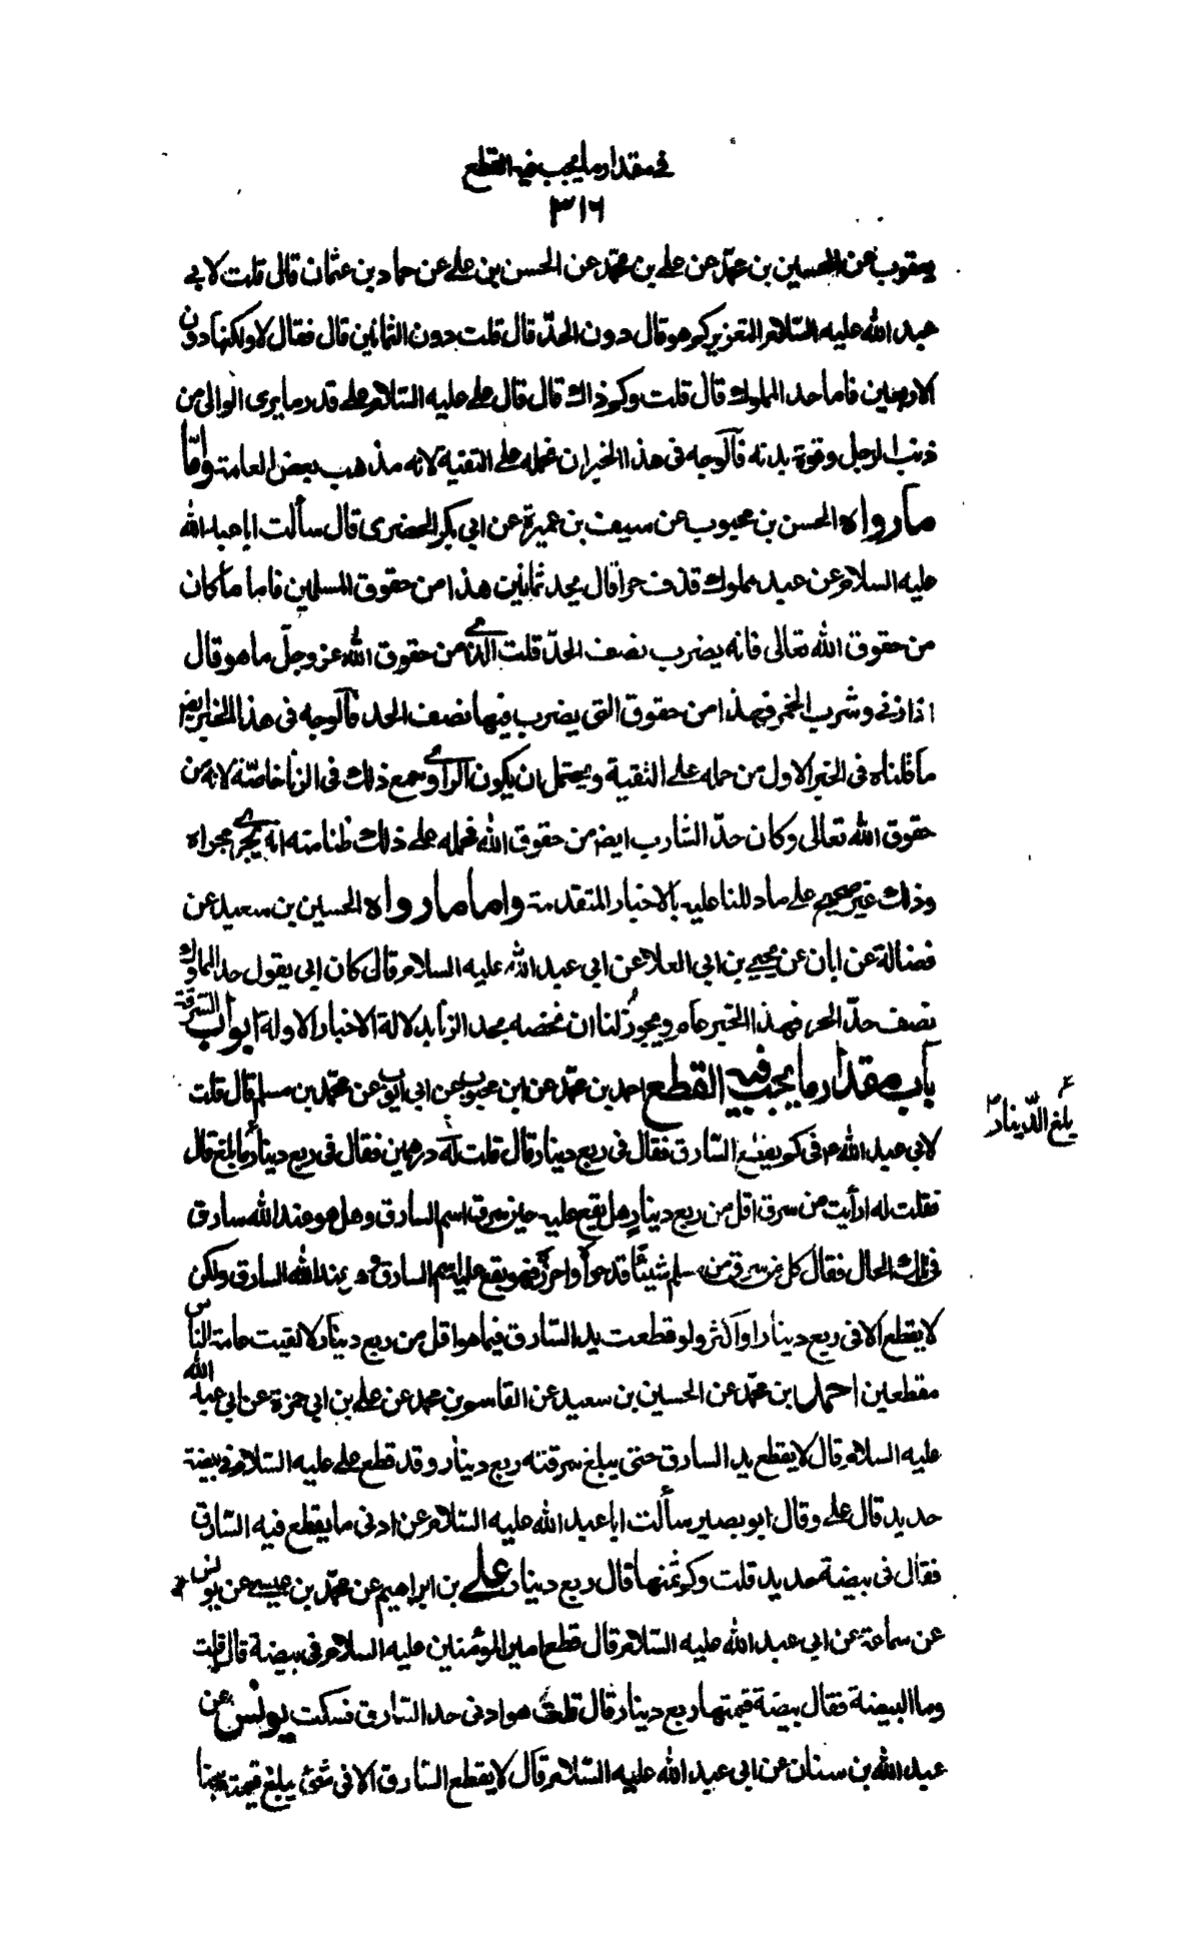 في مقدار ما يجب فيه القطع
٣١٦
يعقوب عن الحسين بن محمّد عن علي بن محمّد عن الحسن بن علي عن حماد بن عثمان قال قلت لابي
عبد الله عليه السّلام التعزير كم هو قال دون الحدّ قال قلت دون الثمانين قال فقال لا ولكنها دون
الاربعين فاما حد المملوك قال قلت وكم ذاك قال قال علي عليه السّلام على قدر ما يرى الوالي من
ذنب الرجل وقوة بدنه فالوجه في هذا الخبر ان نحمله على التقية لانه مذهب بعض العامة وامّا
ما رواه الحسن بن محبوب عن سيف بن عميرة عن ابي بكر الحضرمي قال سألت ابا عبد الله
عليه السلام عن عبد مملوك قذف حرا قال يحد ثمانين هذا من حقوق المسلمين فاما ما كان
من حقوق الله تعالى فانه يضرب نصف الحدّ قلت الذي من حقوق الله عز وجلّ ما هو قال
اذا زنى وشرب الخمر فهذا من حقوق التي يضرب فيها نصف الحد فالوجه في هذا الخبر ايضا
ما قلناه في الخبر الاول من حمله على التقية ويحتمل ان يكون الراوي سمع ذلك في الزنا خاصّة لانه من
حقوق الله تعالى وكان حدّ الشارب ايضا من حقوق الله فحمله على ذلك ظنا منه انه يجري مجراه
وذلك غير صحيح على ما دللنا عليه بالاخبار المتقدمة واما ما رواه الحسين بن سعيد عن
فضالة عن ابان عن يحيى بن ابي العلا عن ابي عبد الله عليه السلام قال كان ابي يقول حد المملوك
نصف حدّ الحر فهذا الخبر عام ويجوز لنا ان نخصه بحد الزنا بدلالة الاخبار الاولة ابواب السّرقة
باب مقدار ما يجب فيه القطع احمد بن محمّد عن ابن محبوب عن ابي ايوب عن محمّد بن مسلم قال قلت
لابي عبد الله ع في كم يقطع السّارق فقال في ربع دينار قال قلت له في درهمين فقال في ربع دينار ما بلغ قال
بلغ الدّينار
فقلت له ارأيت من سرق اقل من ربع دينار هل يقع عليه حين سرق اسم السارق وهل هو عند الله سارق
في تلك الحال فقال كل من سرق من مسلم شيئا قد حواه واحرزه فهو يقع عليه اسم السارق وهو عند الله السارق ولكن
لا يقطع الا في ربع دينار او اكثر ولو قطعت يد السّارق فيما هو اقل من ربع دينار لالفيت عامة الناس
مقطعين احمد بن محمّد عن الحسين بن سعيد عن القاسم بن محمد عن علي بن ابي حمزة عن ابي عبد الله
عليه السلام قال لا يقطع يد السارق حتى يبلغ سرقته ربع دينار وقد قطع علي عليه السّلام في بيضة
حديد قال علي وقال ابو بصير سألت ابا عبد الله عليه السّلام عن ادنى ما يقطع فيه السّارق
فقال في بيضة حديد قلت وكم ثمنها قال ربع دينار علي بن ابراهيم عن محمّد بن عيسى عن يونس
عن سماعة عن ابي عبد الله عليه السّلام قال قطع امير المؤمنين عليه السلام في بيضة قال قلت
وما البيضة فقال بيضة قيمتها ربع دينار قال قلت هو ادنى حد السّارق فسكت يونس عن
عبد الله بن سنان عن ابي عبد الله عليه السّلام قال لا يقطع السّارق الا في شئ يبلغ قيمته مجنا